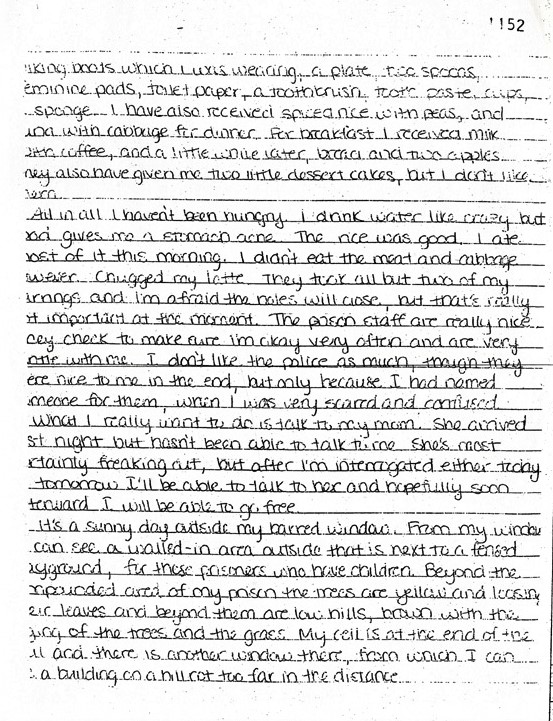 152
iking boots which I was wearing, a plate, two spoons,
eminine pads, toilet paper, a toothbrush, tooth paste, cups,
sponge. I have also received spiced rice with peas, and
and with cabbage for dinner. For breakfast I received milk
coffee, and a little while later, bread and two apples.
hey also have given me two little dessert cakes, but I don't like
hem.
All in all I haven't been hungry. I drink water like crazy but
gives me a stomach ache. The rice was good, I ate
ost of it this morning. I didn't eat the meat and cabbage
wever. Chugged my latte. They took all but two of my
rrings and I'm afraid the holes will close, but that's really
t important at the moment. The prison staff are really nice
ey check to make sure I'm okay very often and are very
ntle with me. I don't like the police as much, though they
ere nice to me in the end, but only because I had named
meone for them, when I was very scared and confused.
What I really want to do is talk to my mom. She arrived
st night but hasn't been able to talk to me. She's most
rtainly freaking out, but after I'm interrogated either today
tomorrow I'll be able to talk to her and hopefully soon
terward I will be able to go free.
It's a sunny day outside my barred window. From my window
can see a walled-in area outside that is next to a fensed
ayground, for those prisoners who have children. Beyond the
mpounded area of my prison the trees are yellow and loosing
eir leaves and beyond them are low hills, brown with the
ing of the trees and the grass. My cell is at the end of the
ll and there is another window there, from which I can
a building on a hill not too far in the distance.